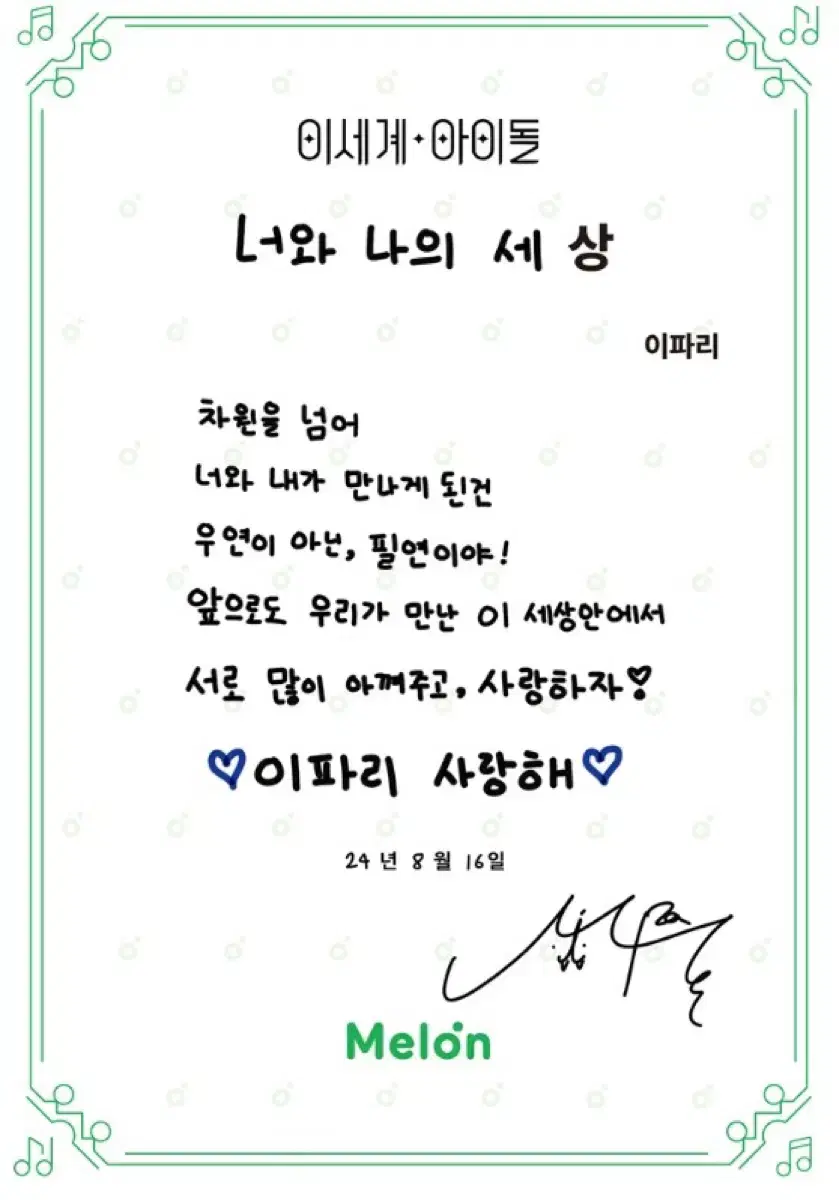 이세계아이돌
너와 나의 세상
이파리
차원을 넘어
너와 내가 만나게 된건
우연이 아닌, 필연이야!
앞으로도 우리가 만난 이 세상안에서
서로 많이 아껴주고, 사랑하자♡
♡이파리 사랑해♡
24년 8월 16일
Melon